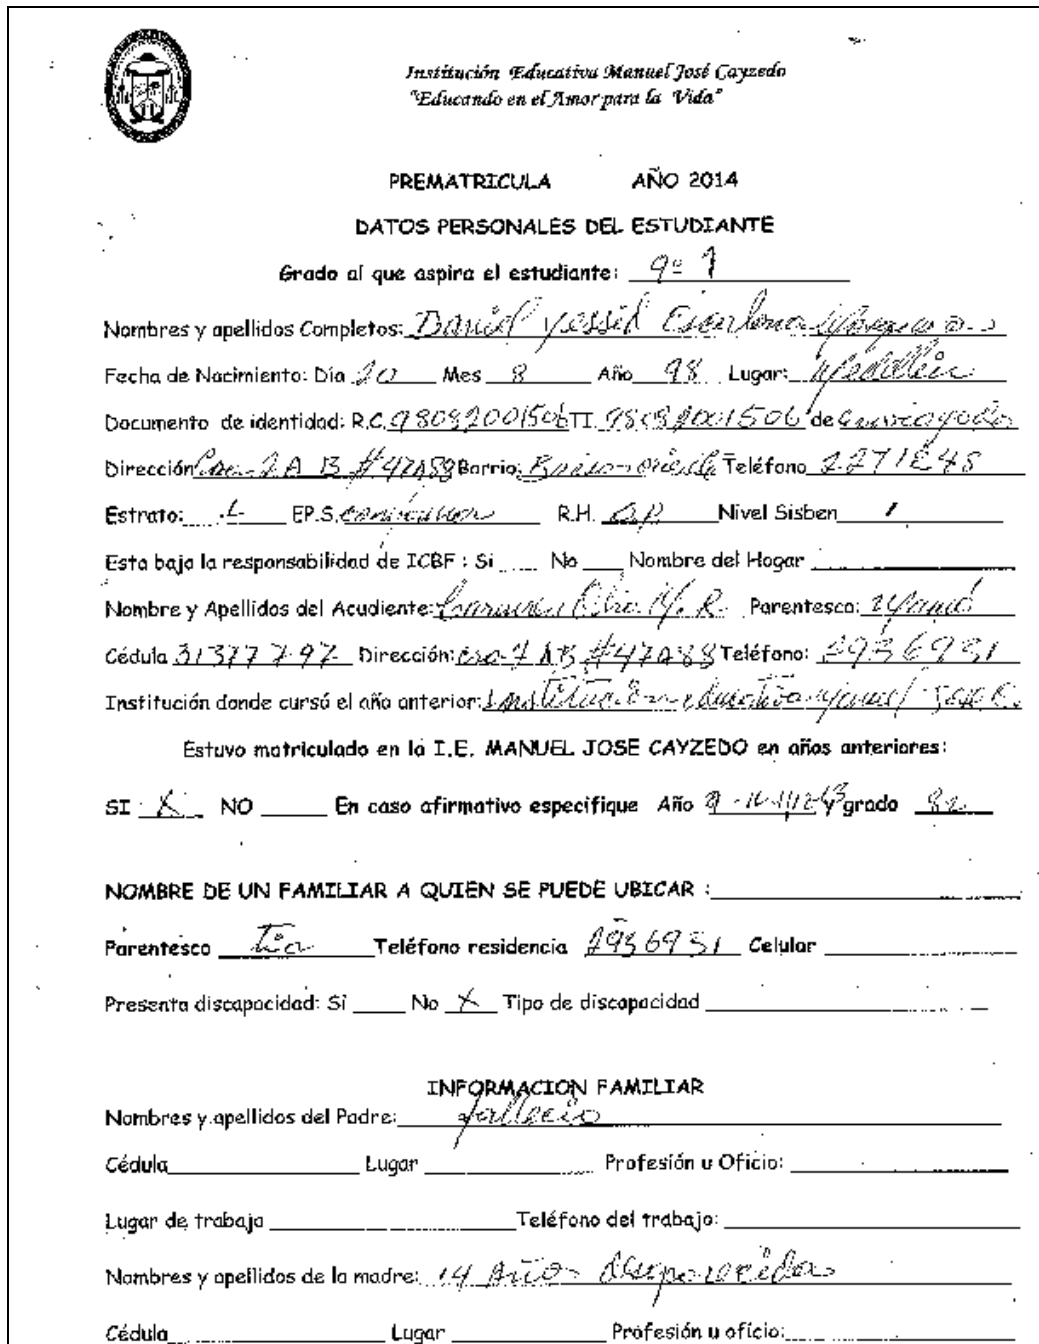 Institución Educativa Manuel José Cayzedo
"Educando en el Amor para la Vida"
PREMATRICULA AÑO 2014
DATOS PERSONALES DEL ESTUDIANTE
Grado al que aspira el estudiante: 9º 1
Nombres y apellidos Completos: Daniel Yessid
Fecha de Nacimiento: Día 20 Mes 8 Año 98 Lugar: Medellin
Documento de identidad: R.C. 98082001506 TI. 98082001506 de envigado
Dirección # 47A88 Barrio: Teléfono
Estrato: EP.S. R.H. Nivel Sisben 1
Esta bajo la responsabilidad de ICBF : Si ____ No ____ Nombre del Hogar ____
Nombre y Apellidos del Acudiente: M. R. Parentesco: Mamá
Cédula 31377797 Dirección: #47A88 Teléfono:
Institución donde cursó el año anterior: Institución educativa Manuel José C.
Estuvo matriculado en la I.E. MANUEL JOSE CAYZEDO en años anteriores:
SI X NO ____ En caso afirmativo especifique Año y grado
NOMBRE DE UN FAMILIAR A QUIEN SE PUEDE UBICAR : ____
Parentesco Tia Teléfono residencia Celular ____
Presenta discapacidad: Si ____ No X Tipo de discapacidad ____
INFORMACION FAMILIAR
Nombres y apellidos del Padre: fallecio
Cédula ____ Lugar ____ Profesión u Oficio: ____
Lugar de trabajo ____ Teléfono del trabajo: ____
Nombres y apellidos de la madre: 14 Años
Cédula ____ Lugar ____ Profesión u oficio: ____